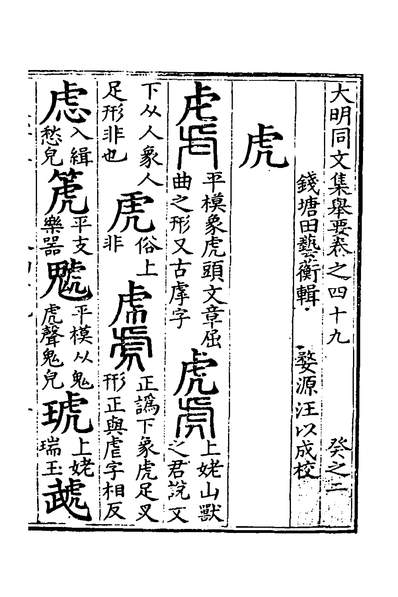 大明同文集舉要卷之四十九 癸之二
錢塘田藝衡輯 婺源汪以成校
虎
虍 平模象虎頭文章屈曲之形又古虖字 虎 上姥山獸之君說文
下从人象人足形非也 虎 俗上非 虎 正譌下象虎足叉形正與虐字相反
虑 入緝愁皃 箎 平支樂器 䰧 平模从鬼虎聲鬼皃 琥 上姥瑞玉 虣